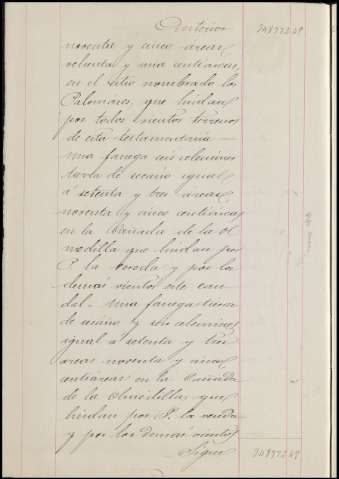 Anterior 74897269
noventa y cinco areas
ochenta y una centiareas
en el sitio nombrado los
Palomares, que lindan
por todos vientos terrenos
de esta testamentaria —
una fanega seis celemines
tierra de secano igual
á setenta y tres áreas
noventa y cinco centiáreas
en la Cañada de la Ol
medilla que lindan por
P. la vereda y por los
demas vientos este cau
dal. — Una fanega tierra
de secano y seis celemines
igual á setenta y tres
areas noventa y cinco
centiáreas en la Cañada
de la Olmedilla que
lindan por P. la vereda
y por los demas vientos
Sigue 74897269